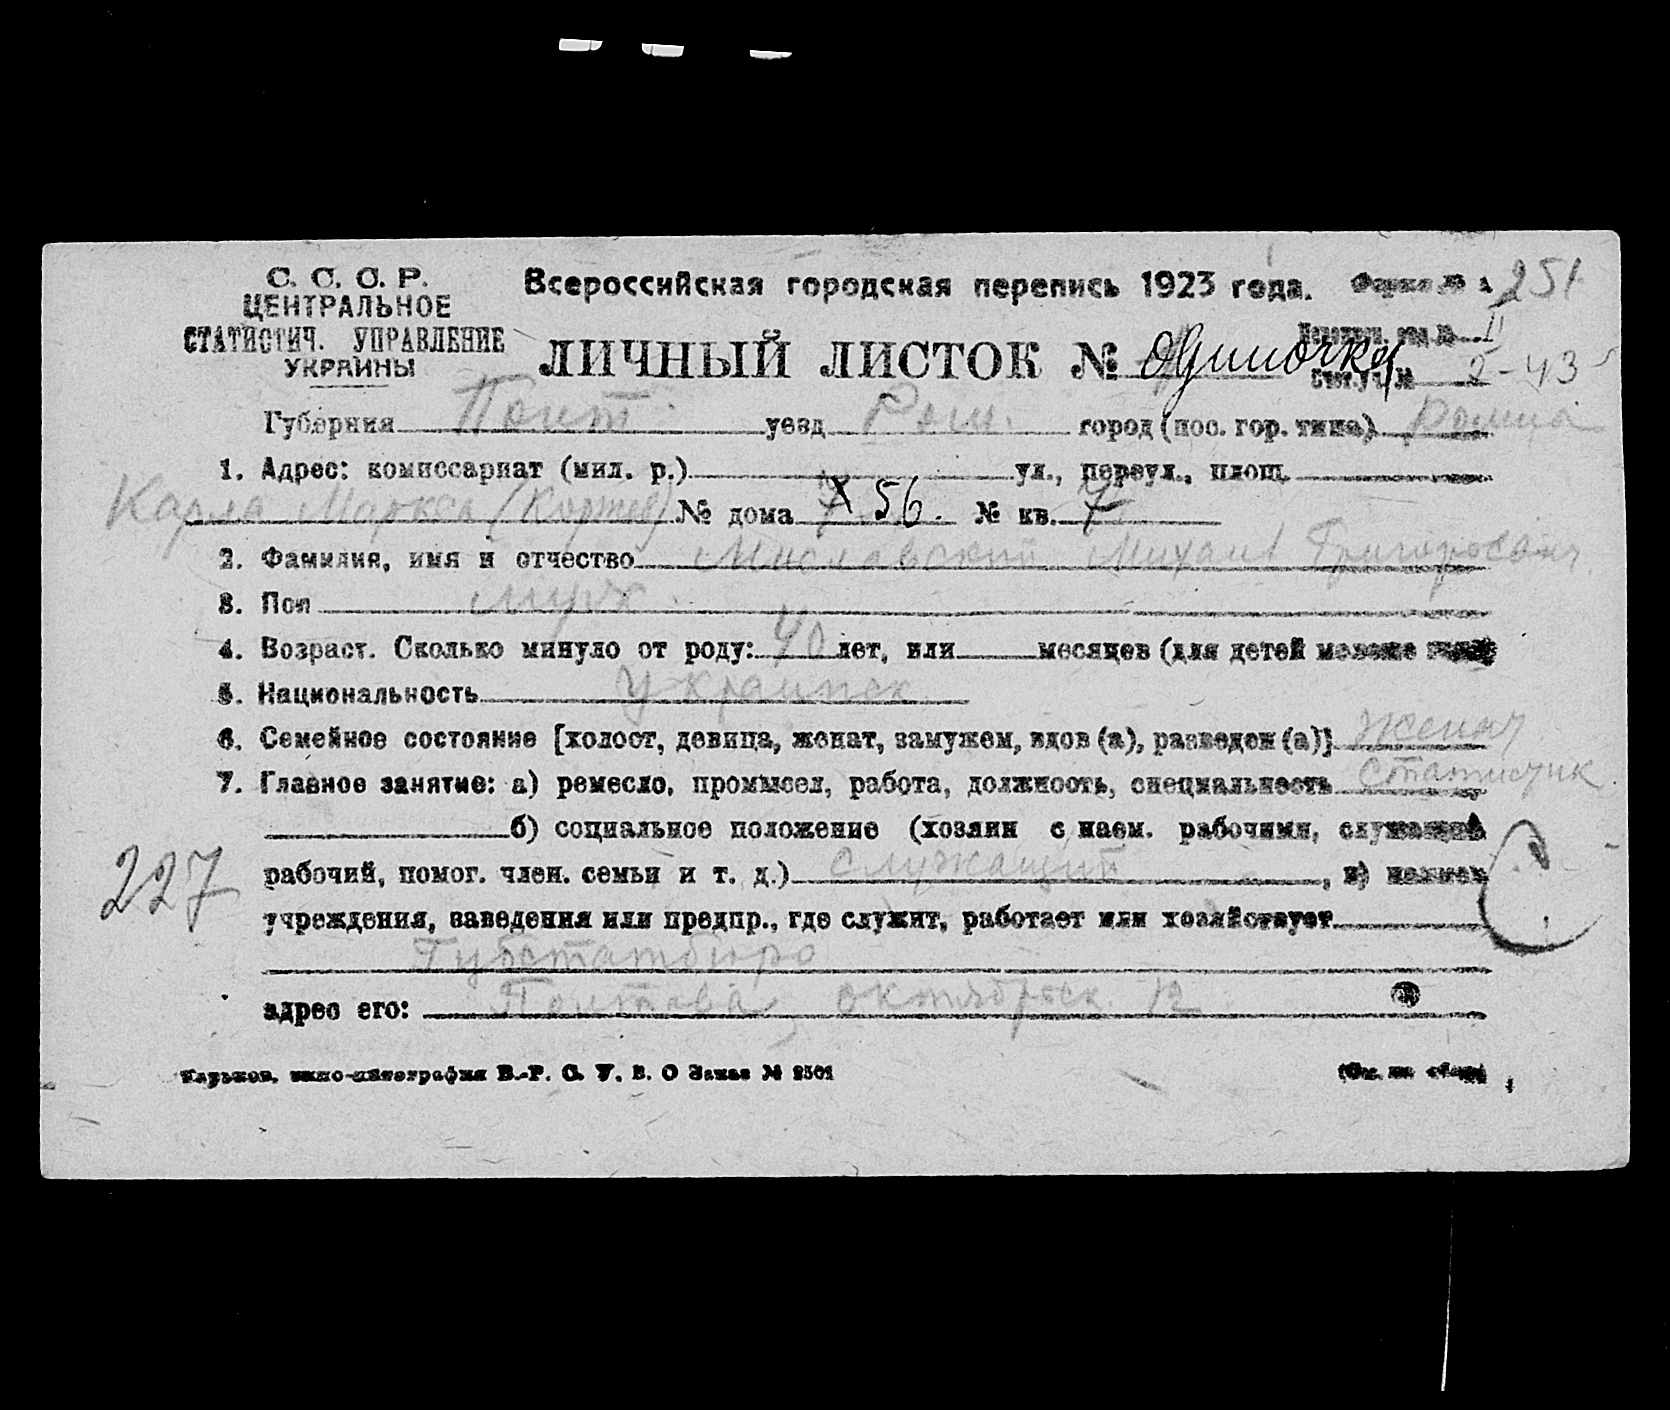 С. С. С. Р.
ЦЕНТРАЛЬНОЕ
СТАТИСТИЧ. УПРАВЛЕНИЕ
УКРАИНЫ
Всероссийская городская перепись 1923 года. Форма № 1 251
ЛИЧНЫЙ ЛИСТОК № Одиночка
№ II
№ 2-43
Губерния Полт. уезд Ром. город (пос. гор. типа) Ромны
1. Адрес: комиссариат (мил. р.) ул., переул., площ.
Карла Маркса № дома 56. № кв. 7
2. Фамилия, имя и отчество Миславский Михаил Григорьевич
3. Пол муж.
4. Возраст. Сколько минуло от роду: 40 лет, или месяцев (для детей моложе
5. Национальность Украинск
6. Семейное состояние [холост, девица, женат, замужем, вдов (а), разведен (а)] Женат
7. Главное занятие: а) ремесло, промысел, работа, должность, специальность Статистик
б) социальное положение (хозяин с наем. рабочими, служащий
рабочий, помог. член. семьи и т. д.) служащий, в)
227
учреждения, заведения или предпр., где служит, работает или хозяйствует
Губстатбюро
адрес его: Полтава, Октябрьск. 12
Харьков, В.-Р. С. У. В. О Заказ № 2501